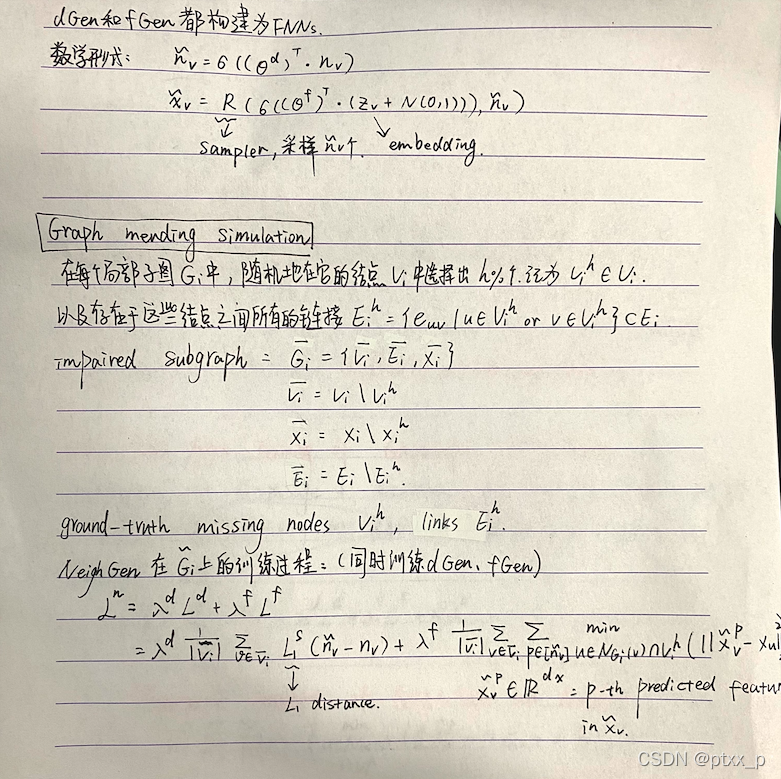 dGen和fGen都构建为FNNs.
数学形式: ñᵥ = σ((θᵈ)ᵀ · nᵥ)
x̃ᵥ = R(σ((θᶠ)ᵀ · (zᵥ + N(0,1))), ñᵥ)
sampler, 采样ñᵥ个. embedding.
Graph mending simulation
在每个局部子图Gᵢ中, 随机地在它的结点Vᵢ中选择出h%个.记为Vᵢʰ ∈ Vᵢ.
以及存在于这些结点之间所有的链接Eᵢʰ = {eᵤᵥ | u∈Vᵢʰ or v∈Vᵢʰ} ⊂ Eᵢ
impaired subgraph = G̅ᵢ = {V̅ᵢ, E̅ᵢ, X̅ᵢ}
V̅ᵢ = Vᵢ \ Vᵢʰ
X̅ᵢ = Xᵢ \ Xᵢʰ
E̅ᵢ = Eᵢ \ Eᵢʰ.
ground-truth missing nodes Vᵢʰ, links Eᵢʰ.
NeighGen 在 G̃ᵢ上的训练过程: (同时训练dGen、fGen)
Lⁿ = λᵈ Lᵈ + λᶠ Lᶠ
= λᵈ 1/|V̅ᵢ| Σ_{v∈V̅ᵢ} L₁ˢ(ñᵥ - nᵥ) + λᶠ 1/|V̅ᵢ| Σ_{v∈V̅ᵢ} Σ_{p∈[ñᵥ]} min_{u∈N_{Gᵢ}(v)∩Vᵢʰ} (||x̃ᵥᵖ - xᵤ||²
L₁ distance. x̃ᵥᵖ ∈ ℝ^{dx} = p-th predicted featur
in x̃ᵥ.
CSDN @ptxx_p